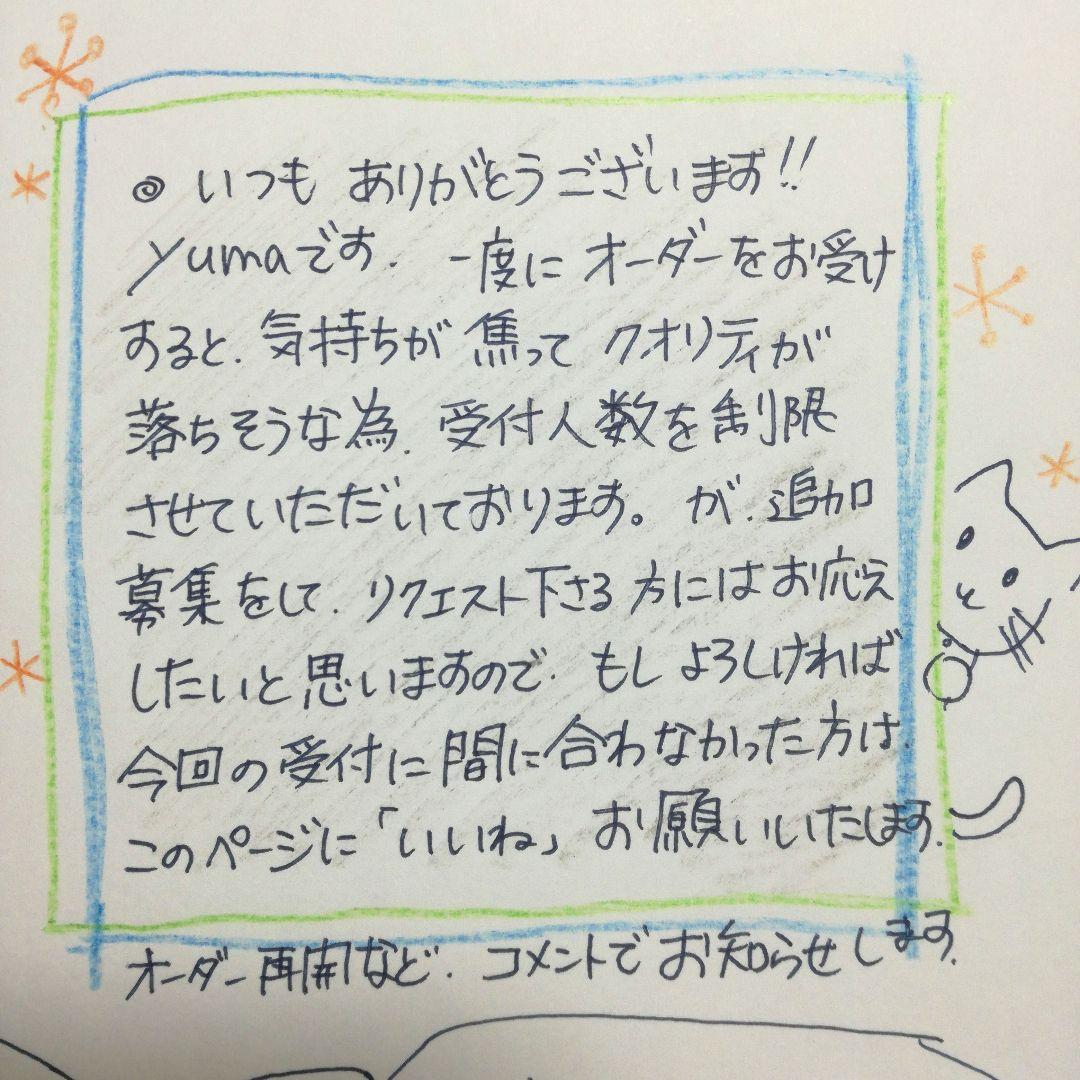 ◎ いつも ありがとうございます!!
yumaです. 一度に オーダーをお受け
すると. 気持ちが 焦って クオリティが
落ちそうな為. 受付人数を制限
させていただいております。 が. 追加
募集をして. リクエスト下さる 方にはお応え
したいと思いますので. もし よろしければ
今回の受付に間に合わなかった方は.
このページに「いいね」 お願いいたします.
オーダー再開など. コメントでお知らせします.